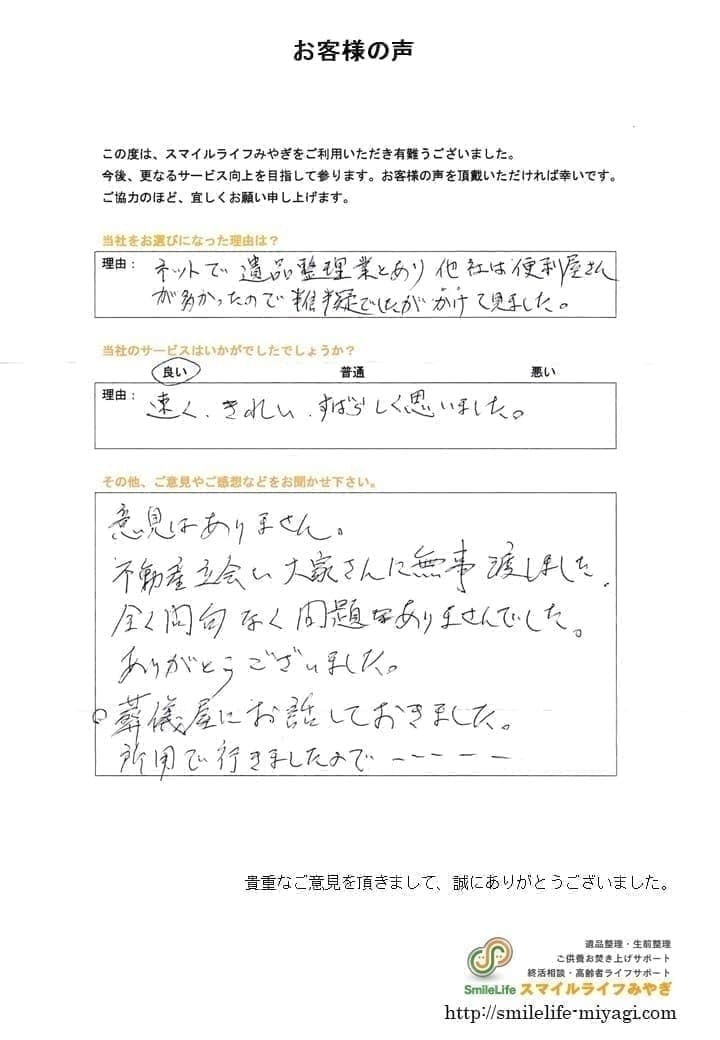 お客様の声
この度は、スマイルライフみやぎをご利用いただき有難うございました。
今後、更なるサービス向上を目指して参ります。お客様の声を頂戴いただければ幸いです。
ご協力のほど、宜しくお願い申し上げます。
当社をお選びになった理由は？
理由： ネットで遺品整理業とあり他社は便利屋さん
が多かったので半信半疑でしたがかけて見ました。
当社のサービスはいかがでしたでしょうか？
良い 普通 悪い
理由： 速く、きれい、すばらしく思いました。
その他、ご意見やご感想などをお聞かせ下さい。
意見はありません。
不動産立会い大家さんに無事渡しました、
全く問句なく問題なありませんでした。
ありがとうございました。
○葬儀屋にお話しておきました。
所用で行きましたので－－－－－
貴重なご意見を頂きまして、誠にありがとうございました。
遺品整理・生前整理
ご供養お焚き上げサポート
終活相談・高齢者ライフサポート
SmileLife スマイルライフみやぎ
http://smilelife-miyagi.com